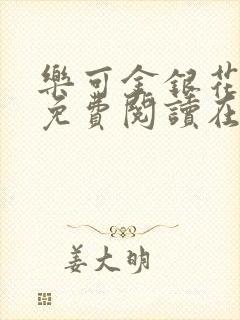 樂可金銀花
免費閱讀在
姜大明